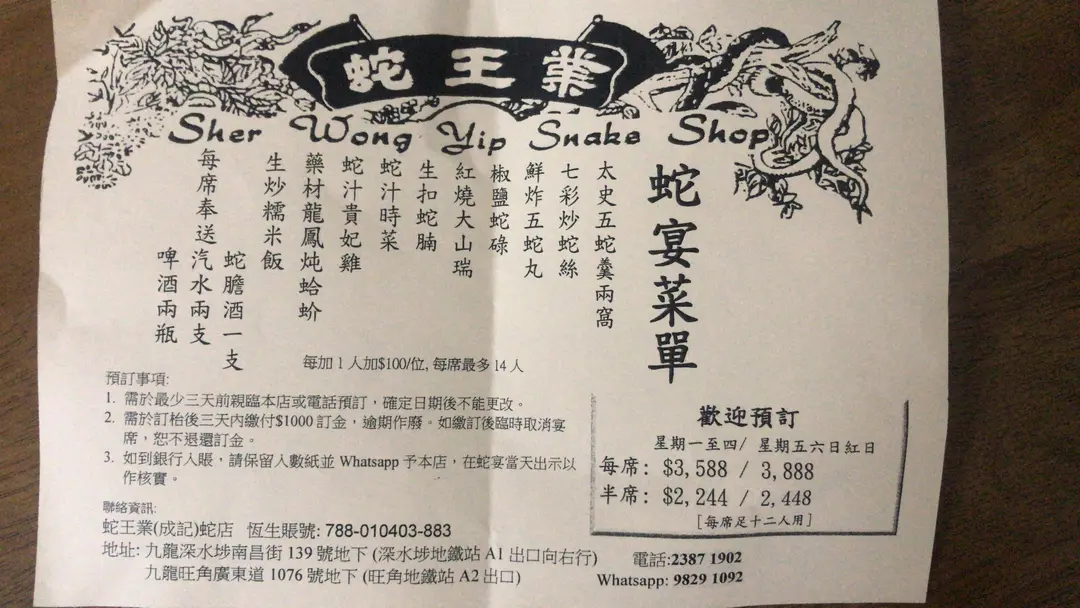 蛇王業
Sher Wong Yip Snake Shop
蛇宴菜單
太史五蛇羹兩窩
七彩炒蛇絲
鮮炸五蛇丸
椒鹽蛇碌
紅燒大山瑞
生扣蛇腩
蛇汁時菜
蛇汁貴妃雞
藥材龍鳳炖蛤蚧
生炒糯米飯
每席奉送
蛇膽酒一支
汽水兩支
啤酒兩瓶
每加 1 人加$100/位, 每席最多 14 人
預訂事項:
1. 需於最少三天前親臨本店或電話預訂，確定日期後不能更改。
2. 需於訂枱後三天內繳付$1000 訂金，逾期作廢。如繳訂後臨時取消宴
席，恕不退還訂金。
3. 如到銀行入賬，請保留入數紙並 Whatsapp 予本店，在蛇宴當天出示以
作核實。
歡迎預訂
星期一至四/ 星期五六日紅日
每席: $3,588 / 3,888
半席: $2,244 / 2,448
[每席足十二人用]
聯絡資訊:
蛇王業(成記)蛇店 恆生賬號: 788-010403-883
地址: 九龍深水埗南昌街 139 號地下 (深水埗地鐵站 A1 出口向右行)
九龍旺角廣東道 1076 號地下 (旺角地鐵站 A2 出口)
電話:2387 1902
Whatsapp: 9829 1092